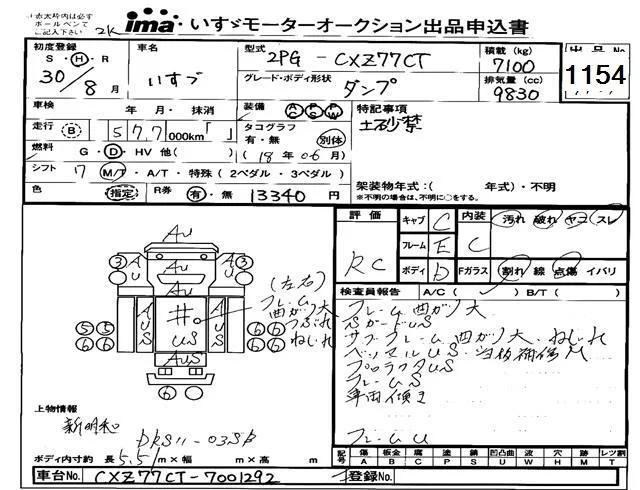 ※赤太枠内は必ず
ボールペンで
ご記入下さい
2K
ima いすゞモーターオークション出品申込書
初度登録 車名 型式 積載(kg) 出品No
S・H・R 2PG - CXZ77CT 7100
30/8月 いすゞ グレード・ボディ形状 ダンプ 排気量(cc) 9830
1154
車検 年 月・抹消 装備 AC PS PW 特記事項
土砂禁
走行 B 577 000km「 」 タコグラフ 有・無 別体
燃料 G・D・HV 他( ) (18年06月)
シフト 7 M/T・A/T・特殊(2ペダル・3ペダル) 架装物年式:( 年式)・不明
色 指定 R券 有・無 13340 円 ※不明の場合は、不明に○をする。
評価 キャブ C 内装 汚れ 破れ ヤコ スレ
RC フレーム E C
ボディ D Fガラス 割れ 線 点傷 イバリ
検査員報告 A/C( ) B/T( )
フレーム曲がり大
SガードUS
サブフレーム曲がり大、ねじれ
プロラフタUS
フレームUS
車両傾き
フレームU
Au
Au
Au
AU
AU
AUS
AUS
井
US
3 3
5 5 6 6
6 6 6 6
6
(左右)
フレーム
曲がり大
つぶれ
ねじれ
上物情報
新明和
DRS11-03SP
ボディ内寸約 長 5.5/m×幅 m×高 m
記号 傷 A 板金 B 腐 C 塗 P 錆 S 凹凸曲 U 波 W 穴 H 跡 M レツ割 T
車台No. CXZ77CT-7001292 登録No.